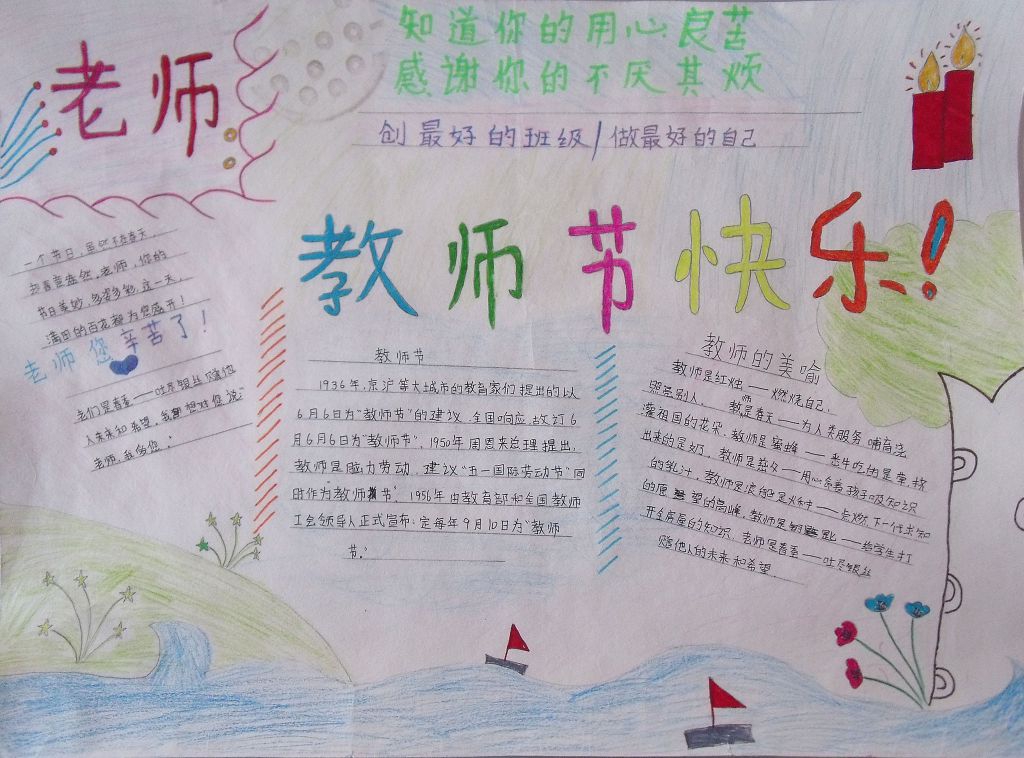 老师
知道你的用心良苦
感谢你的不厌其烦
创最好的班级/做最好的自己
教师节快乐!
一个节日,虽然不在春天,
却春意盎然,老师,你的
节日美妙,多姿多彩,这一天,
满园的百花都为您盛开!
老师您辛苦了!
老师是春蚕——吐尽银丝 赐他
人未来和希望,我想对您说:
老师,我的您。
教师节
1936年,京沪等大城市的教育家们提出的以
6月6日为“教师节”的建议,全国响应,故订6
月6月6日为“教师节”,1950年周恩来总理提出,
教师是脑力劳动,建议“五一国际劳动节”同
时作为“教师节”,1956年由教育部和全国教师
工会领导人正式宣布:定每年9月10日为“教师
节。”
教师的美喻
教师是红烛——燃烧自己,
照亮别人, 教师是春天——为人类服务 哺育浇
灌祖国的花朵,教师是蜜蜂——
出来的是奶,教师是慈父——用心系着孩子吸知识
的乳汁,教师是火种——点燃下一代求知
的愿望的高峰,教师是钥匙——给学生打
开金库的知识,老师是春蚕——吐尽银丝
赐他人的未来和希望。